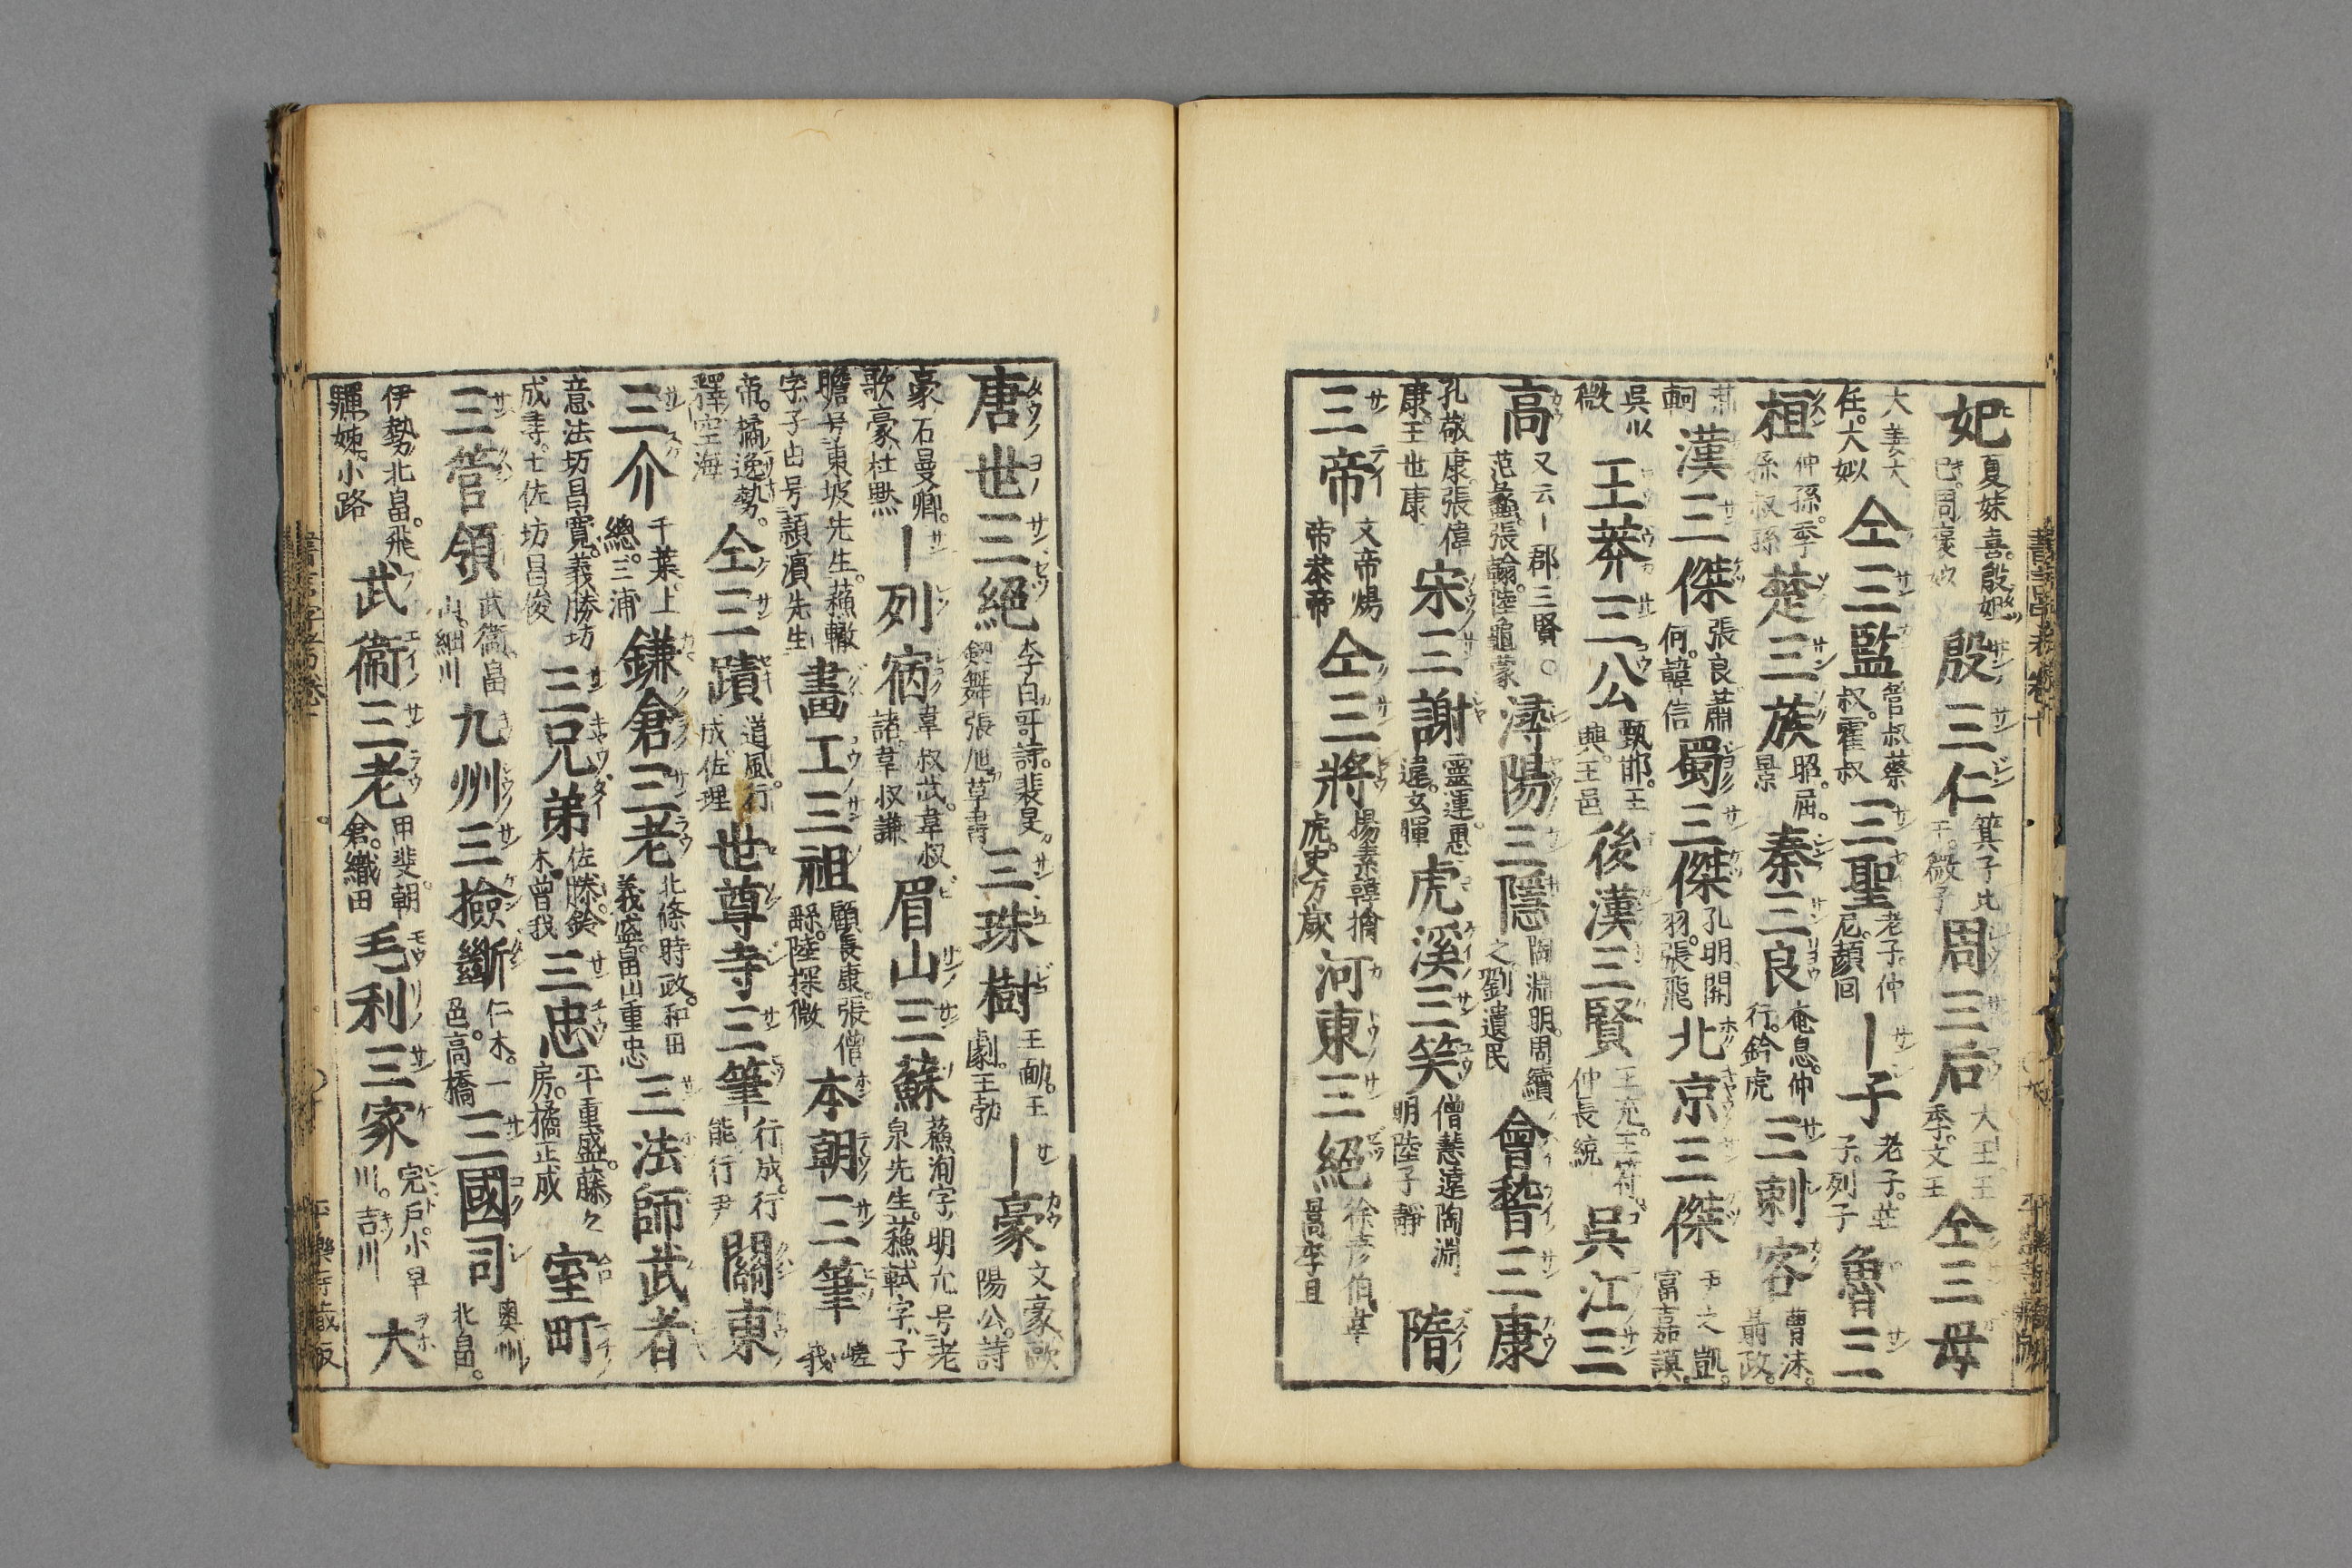 妃夏妹喜。殷妲己。周褒姒殷三仁箕子比干。微子周三后大王。王季。文王仝三母
大姜大任。大姒仝三監管叔蔡叔。霍叔三聖老子。仲尼。顔回｜子老子。莊子。列子魯三
桓仲孫。季孫叔孫楚三族昭。屈。景秦三良奄息。仲行。鈴虎三刺客曹沫。聶政。
荊軻漢三傑張良蕭何。韓信蜀三傑孔明。関羽。張飛北京三傑富嘉謨。
呉以微王莽三公甄邯。王興。王邑後漢三賢王充。王符。仲長統呉江三
高又云｜郡三賢○范蠡。張翰。陸龜蒙潯陽三隱陶淵明。周續之劉遺民會稽三康
孔敬康。張偉康。王世康宋三謝靈運。惠連。玄暉虎溪三笑僧慧遠陶淵明陸子靜隋
三帝文帝煬帝恭帝仝三將楊素韓擒虎。史万歳河東三絕徐彦伯韋暠李亘
唐世三絕李白哥詩。裴旻。劔舞張旭草書三珠樹王勔。王劇。王勃｜豪文豪歐陽公。詩
豪石曼卿。歌豪杜黙｜列病韋叔武。韋叔諸。韋叔謙眉山三蘇蘓洵字明允号老泉先生。蘓軾字子
瞻号東坡先生。蘓轍字子由号潁濱先生畫工三祖顧長康。張僧繇。陸探微本朝三筆嵯峨
帝。橘逸勢。釋空海仝三蹟道風。行成。佐理世尊寺三筆行成。行能行尹關東
三介千葉。上總。三浦鎌倉三老北條時政。和田義盛。畠山重忠三法師武者
意法坊昌寛。義勝坊成尋。土佐坊昌俊三兄弟佐藤。鈴木。曾我三忠平重盛。藤房。橘正成室町
三管領武衞。畠山。細川九州三撿斷仁木。一色。高橋三國司奥州北畠。
伊勢北畠。飛騨姊小路武衞三老甲斐。朝倉。織田毛利三家完戸。小早川。吉川大